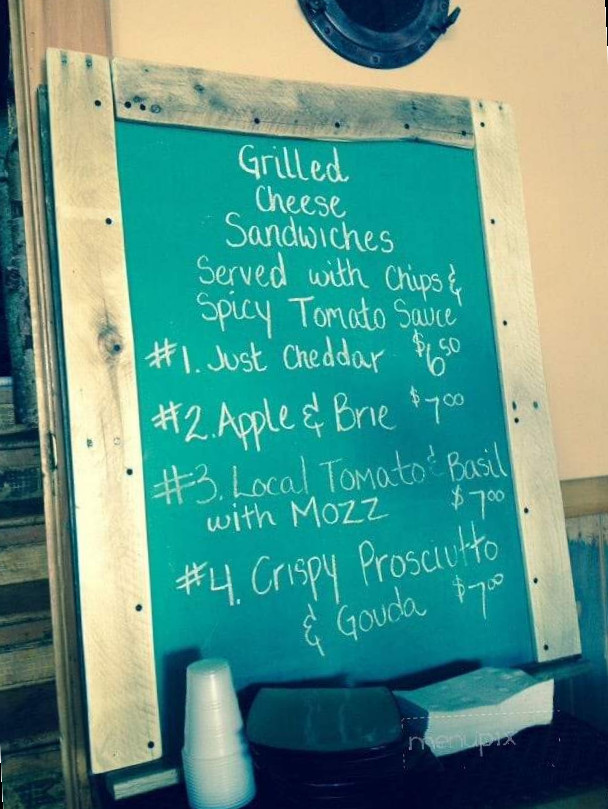 Grilled
Cheese
Sandwiches
Served with Chips &
Spicy Tomato Sauce
#1. Just Cheddar $6.50
#2. Apple & Brie $7.00
#3. Local Tomato & Basil
with Mozz $7.00
#4. Crispy Prosciutto
& Gouda $7.00
menupix